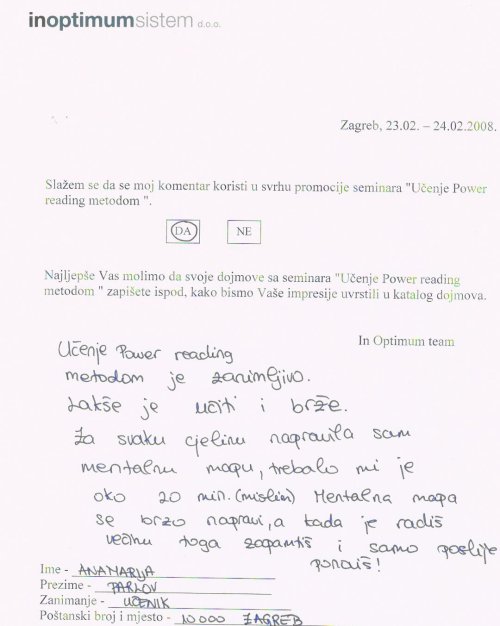 inoptimumsistem d.o.o.
Zagreb, 23.02. – 24.02.2008.
Slažem se da se moj komentar koristi u svrhu promocije seminara "Učenje Power
reading metodom ".
DA NE
Najljepše Vas molimo da svoje dojmove sa seminara "Učenje Power reading
metodom " zapišete ispod, kako bismo Vaše impresije uvrstili u katalog dojmova.
In Optimum team
Učenje Power reading
metodom je zanimljivo.
Lakše je učiti i brže.
Za svaku cjelinu napravila sam
mentalnu mapu, trebalo mi je
oko 20 min. (mislim) Mentalna mapa
se brzo napravi, a kada je radiš
većinu toga zapamtiš i samo poslije
ponoviš!
Ime - ANAMARIJA
Prezime - PARLOV
Zanimanje - UČENIK
Poštanski broj i mjesto - 10000 ZAGREB